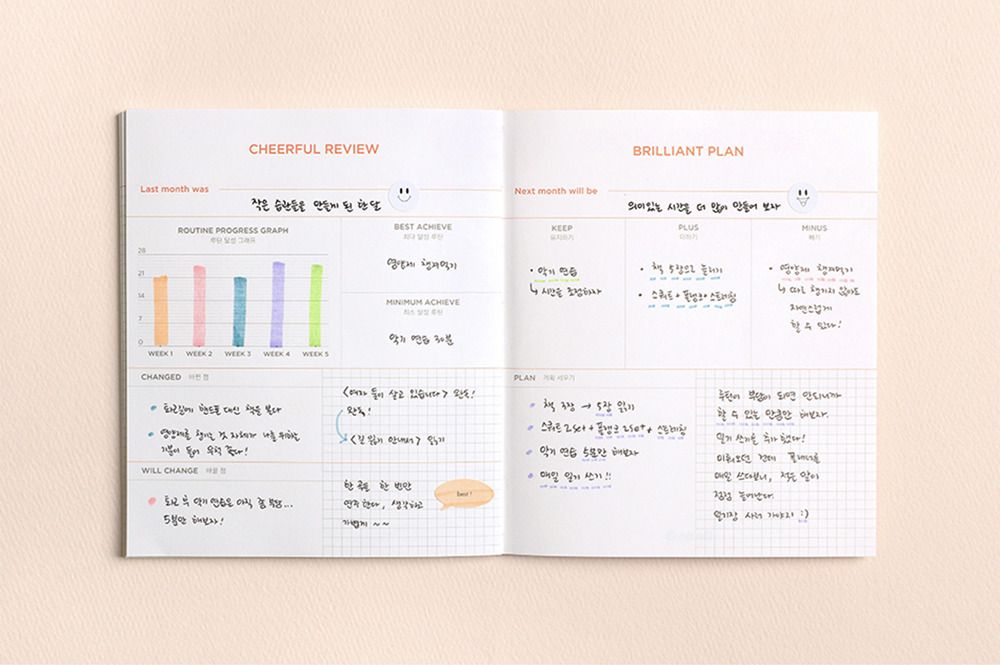 CHEERFUL REVIEW
Last month was
작은 습관들을 만들게 된 한 달
ROUTINE PROGRESS GRAPH
루틴 달성 그래프
28
21
14
7
0
WEEK 1 WEEK 2 WEEK 3 WEEK 4 WEEK 5
BEST ACHIEVE
최다 달성 루틴
영양제 챙겨먹기
MINIMUM ACHIEVE
최소 달성 루틴
악기 연습 30분
CHANGED 바뀐 점
퇴근길에 핸드폰 대신 책을 본다
영양제를 챙기는 것 자체가 나를 위하는
기분이 들어 무척 좋다!
<여자 둘이 살고 있습니다> 완독!
완독!
<길 읽기 안내서> 읽기
WILL CHANGE 바꿀 점
퇴근 후 악기 연습은 아직 좀 부담...
5분만 해보자!
한 곡을 한 번만
연주한다, 생각하고
가볍게 ~~
best!
BRILLIANT PLAN
Next month will be
의미있는 시간을 더 많이 만들어 보자
KEEP
유지하기
• 악기 연습
↳ 시간을 조절하자
PLUS
더하기
• 책 5장으로 늘리기
• 스쿼트 + 플랭크 + 스트레칭
MINUS
빼기
• 영양제 챙겨먹기
↳ 따로 챙기지 않아도
자연스럽게
할 수 있다!
PLAN 계획 세우기
책 3장 → 5장 읽기
스쿼트 25개 + 플랭크 25초 + 스트레칭
악기 연습 5분만 해보자
매일 일기 쓰기!!
루틴이 부담이 되면 안되니까
할 수 있는 만큼만 해보자.
일기 쓰기를 추가했다!
미뤄오던 건데 플래너를
매일 쓰다보니, 적는 말이
점점 늘어난다.
일기장 사러 가야지 :)